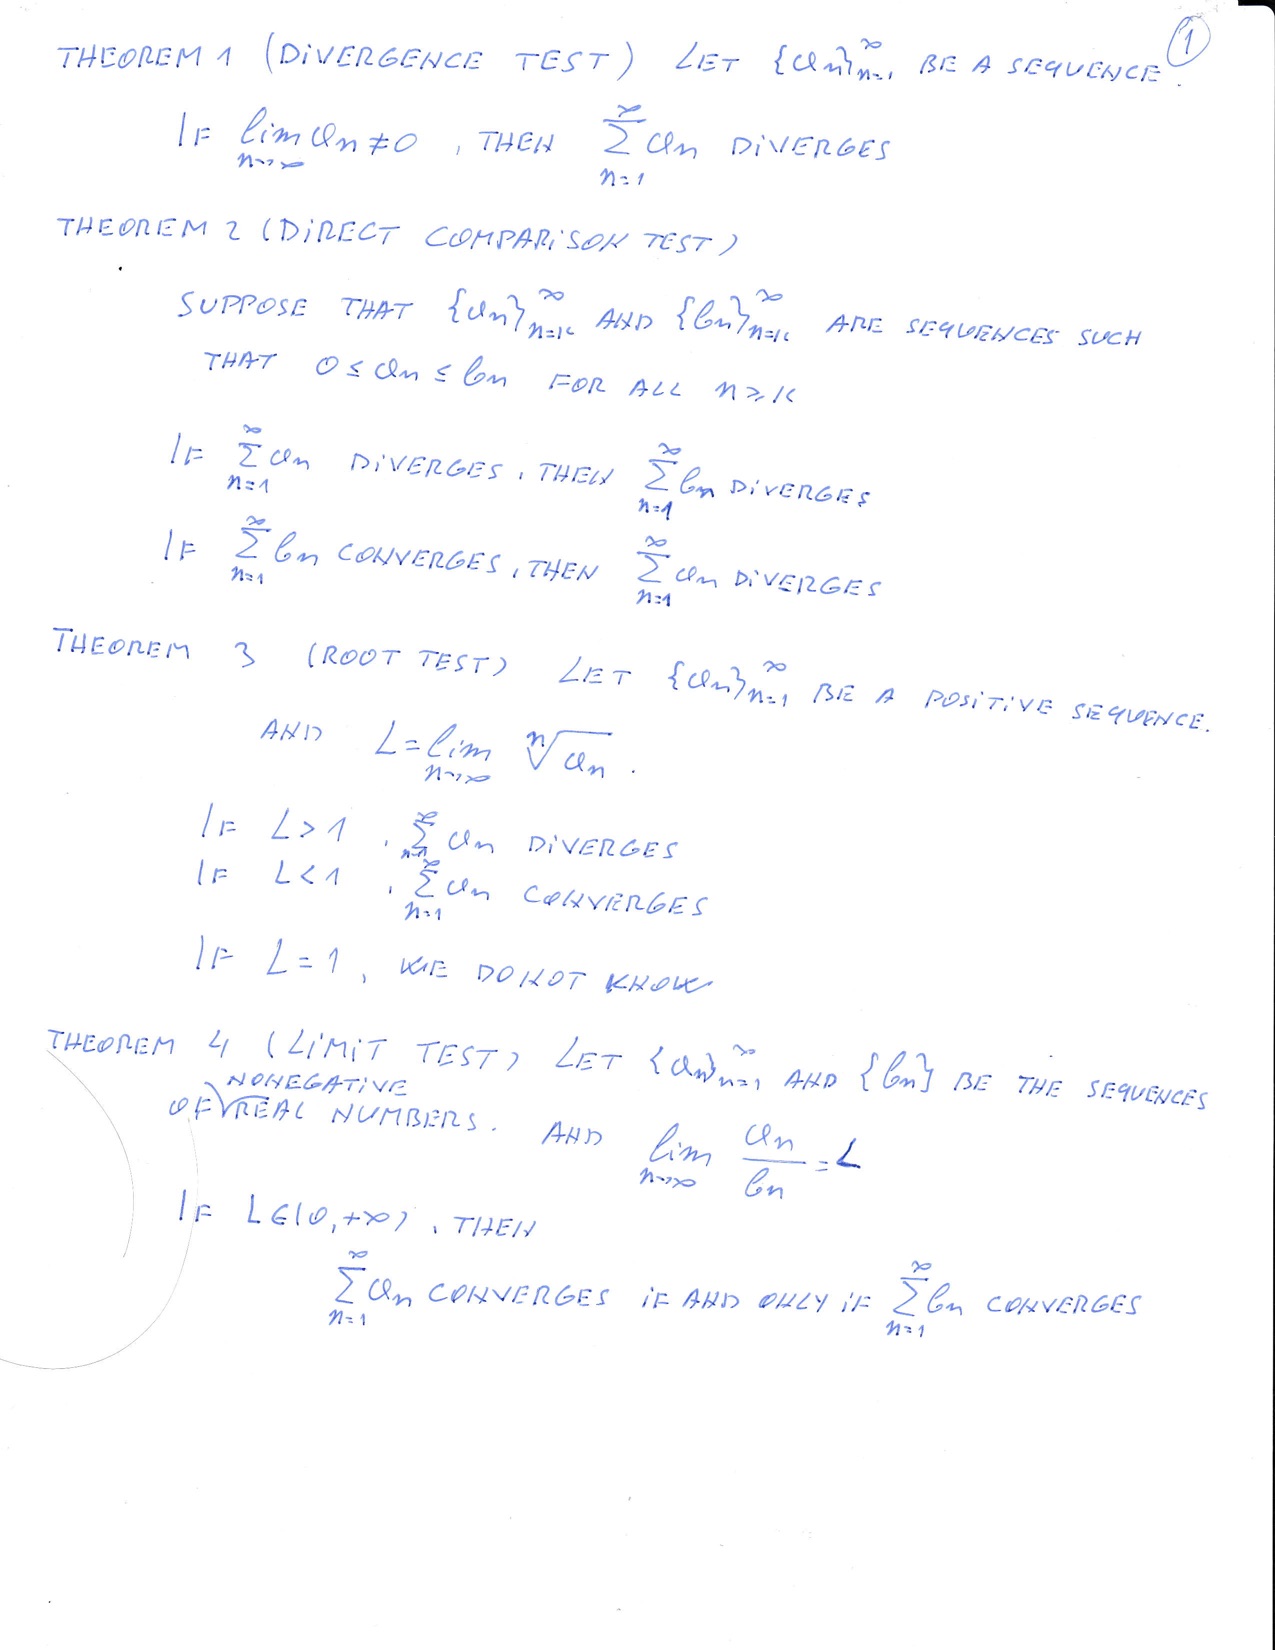 ①
THEOREM 1 (DIVERGENCE TEST) LET {an}_{n=1}^∞ BE A SEQUENCE.
IF lim_{n→∞} an ≠ 0, THEN ∑_{n=1}^∞ an DIVERGES
THEOREM 2 (DIRECT COMPARISON TEST)
SUPPOSE THAT {an}_{n=K}^∞ AND {bn}_{n=K}^∞ ARE SEQUENCES SUCH
THAT 0 ≤ an ≤ bn FOR ALL n ≥ K
IF ∑_{n=1}^∞ an DIVERGES, THEN ∑_{n=1}^∞ bn DIVERGES
IF ∑_{n=1}^∞ bn CONVERGES, THEN ∑_{n=1}^∞ an DIVERGES
THEOREM 3 (ROOT TEST) LET {an}_{n=1}^∞ BE A POSITIVE SEQUENCE.
AND L = lim_{n→∞} ⁿ√an.
IF L > 1, ∑_{n=1}^∞ an DIVERGES
IF L < 1, ∑_{n=1}^∞ an CONVERGES
IF L = 1, WE DO NOT KNOW
THEOREM 4 (LIMIT TEST) LET {an}_{n=1}^∞ AND {bn} BE THE SEQUENCES
NONEGATIVE
OF REAL NUMBERS. AND lim_{n→∞} an/bn = L
IF L ∈ (0, +∞), THEN
∑_{n=1}^∞ an CONVERGES IF AND ONLY IF ∑_{n=1}^∞ bn CONVERGES